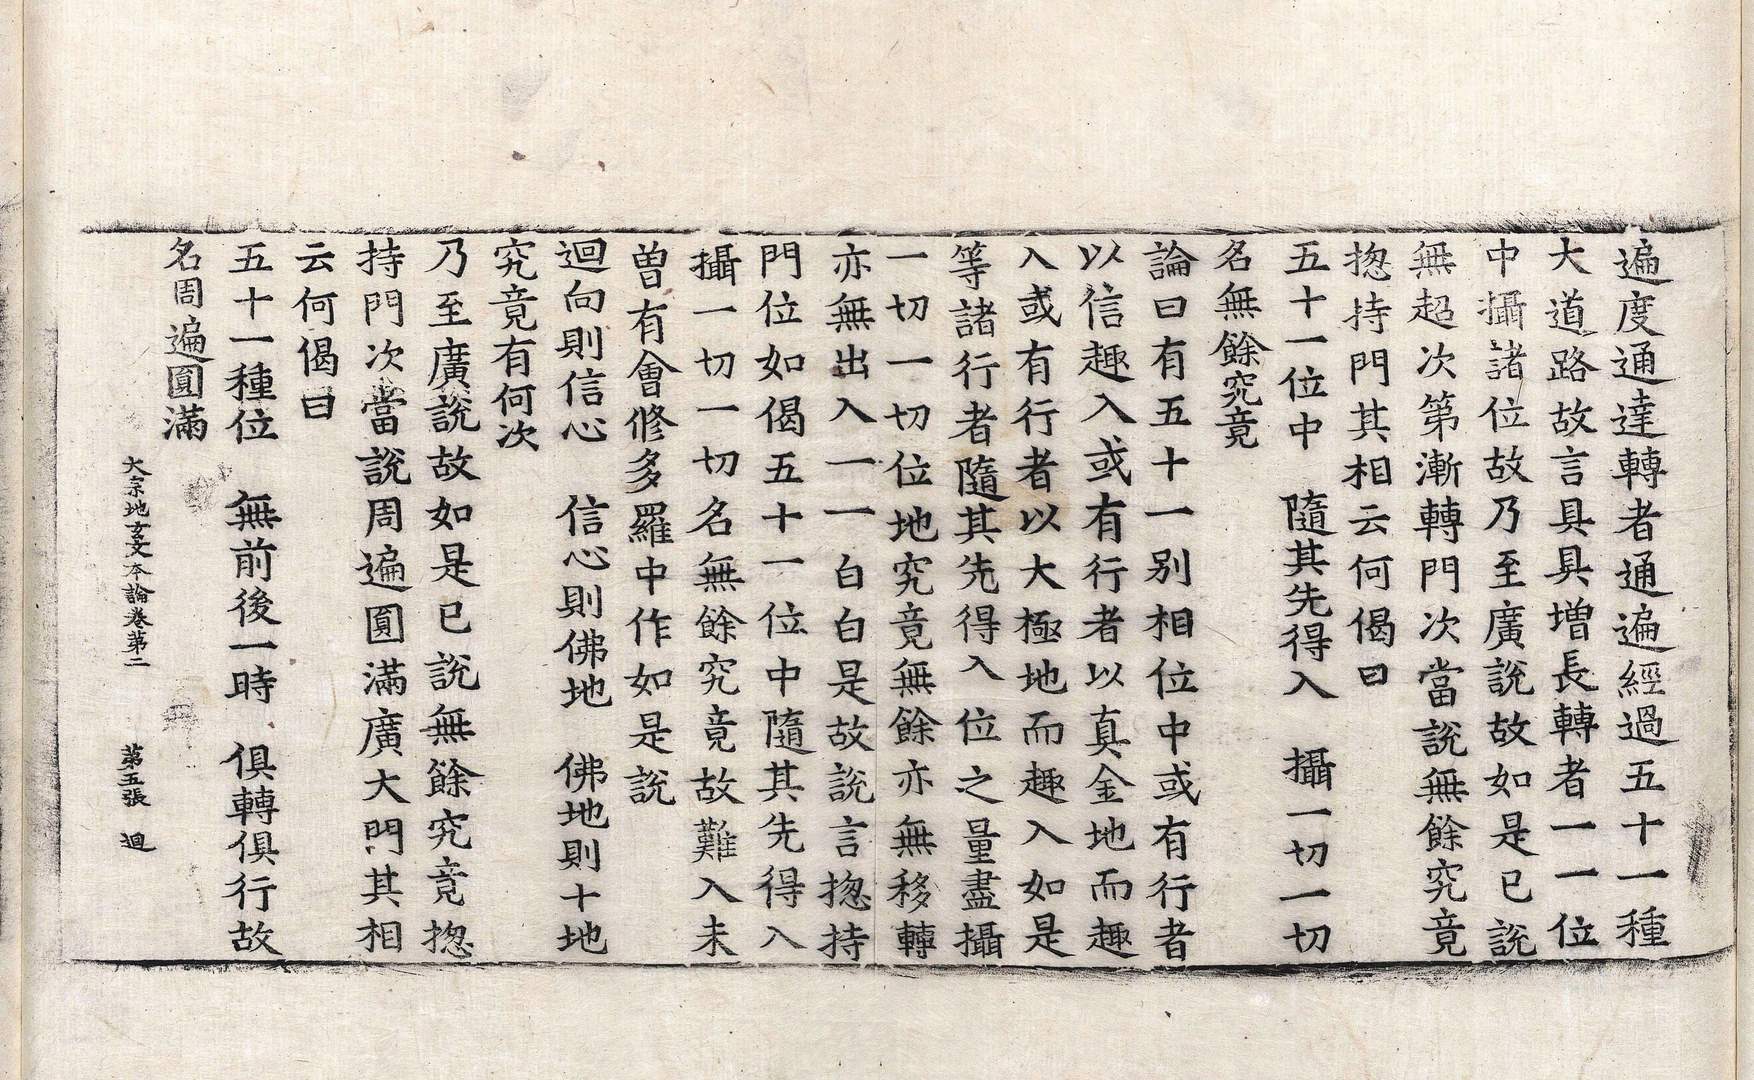 遍度通達轉者通遍經過五十一種
大道路故言具具增長轉者一一位
中攝諸位故乃至廣說故如是已說
無超次第漸轉門次當說無餘究竟
揔持門其相云何偈曰
五十一位中　隨其先得入　攝一切一切
名無餘究竟
論曰有五十一別相位中或有行者
以信趣入或有行者以真金地而趣
入或有行者以大極地而趣入如是
等諸行者隨其先得入位之量盡攝
一切一切位地究竟無餘亦無移轉
亦無出入一一白白是故說言揔持
門位如偈五十一位中隨其先得入
攝一切一切名無餘究竟故難入未
曾有會修多羅中作如是說
迴向則信心　信心則佛地　佛地則十地
究竟有何次
乃至廣說故如是已說無餘究竟揔
持門次當說周遍圓滿廣大門其相
云何偈曰
五十一種位　無前後一時　俱轉俱行故
名周遍圓滿
大宗地玄文本論卷第二　第五張　迴